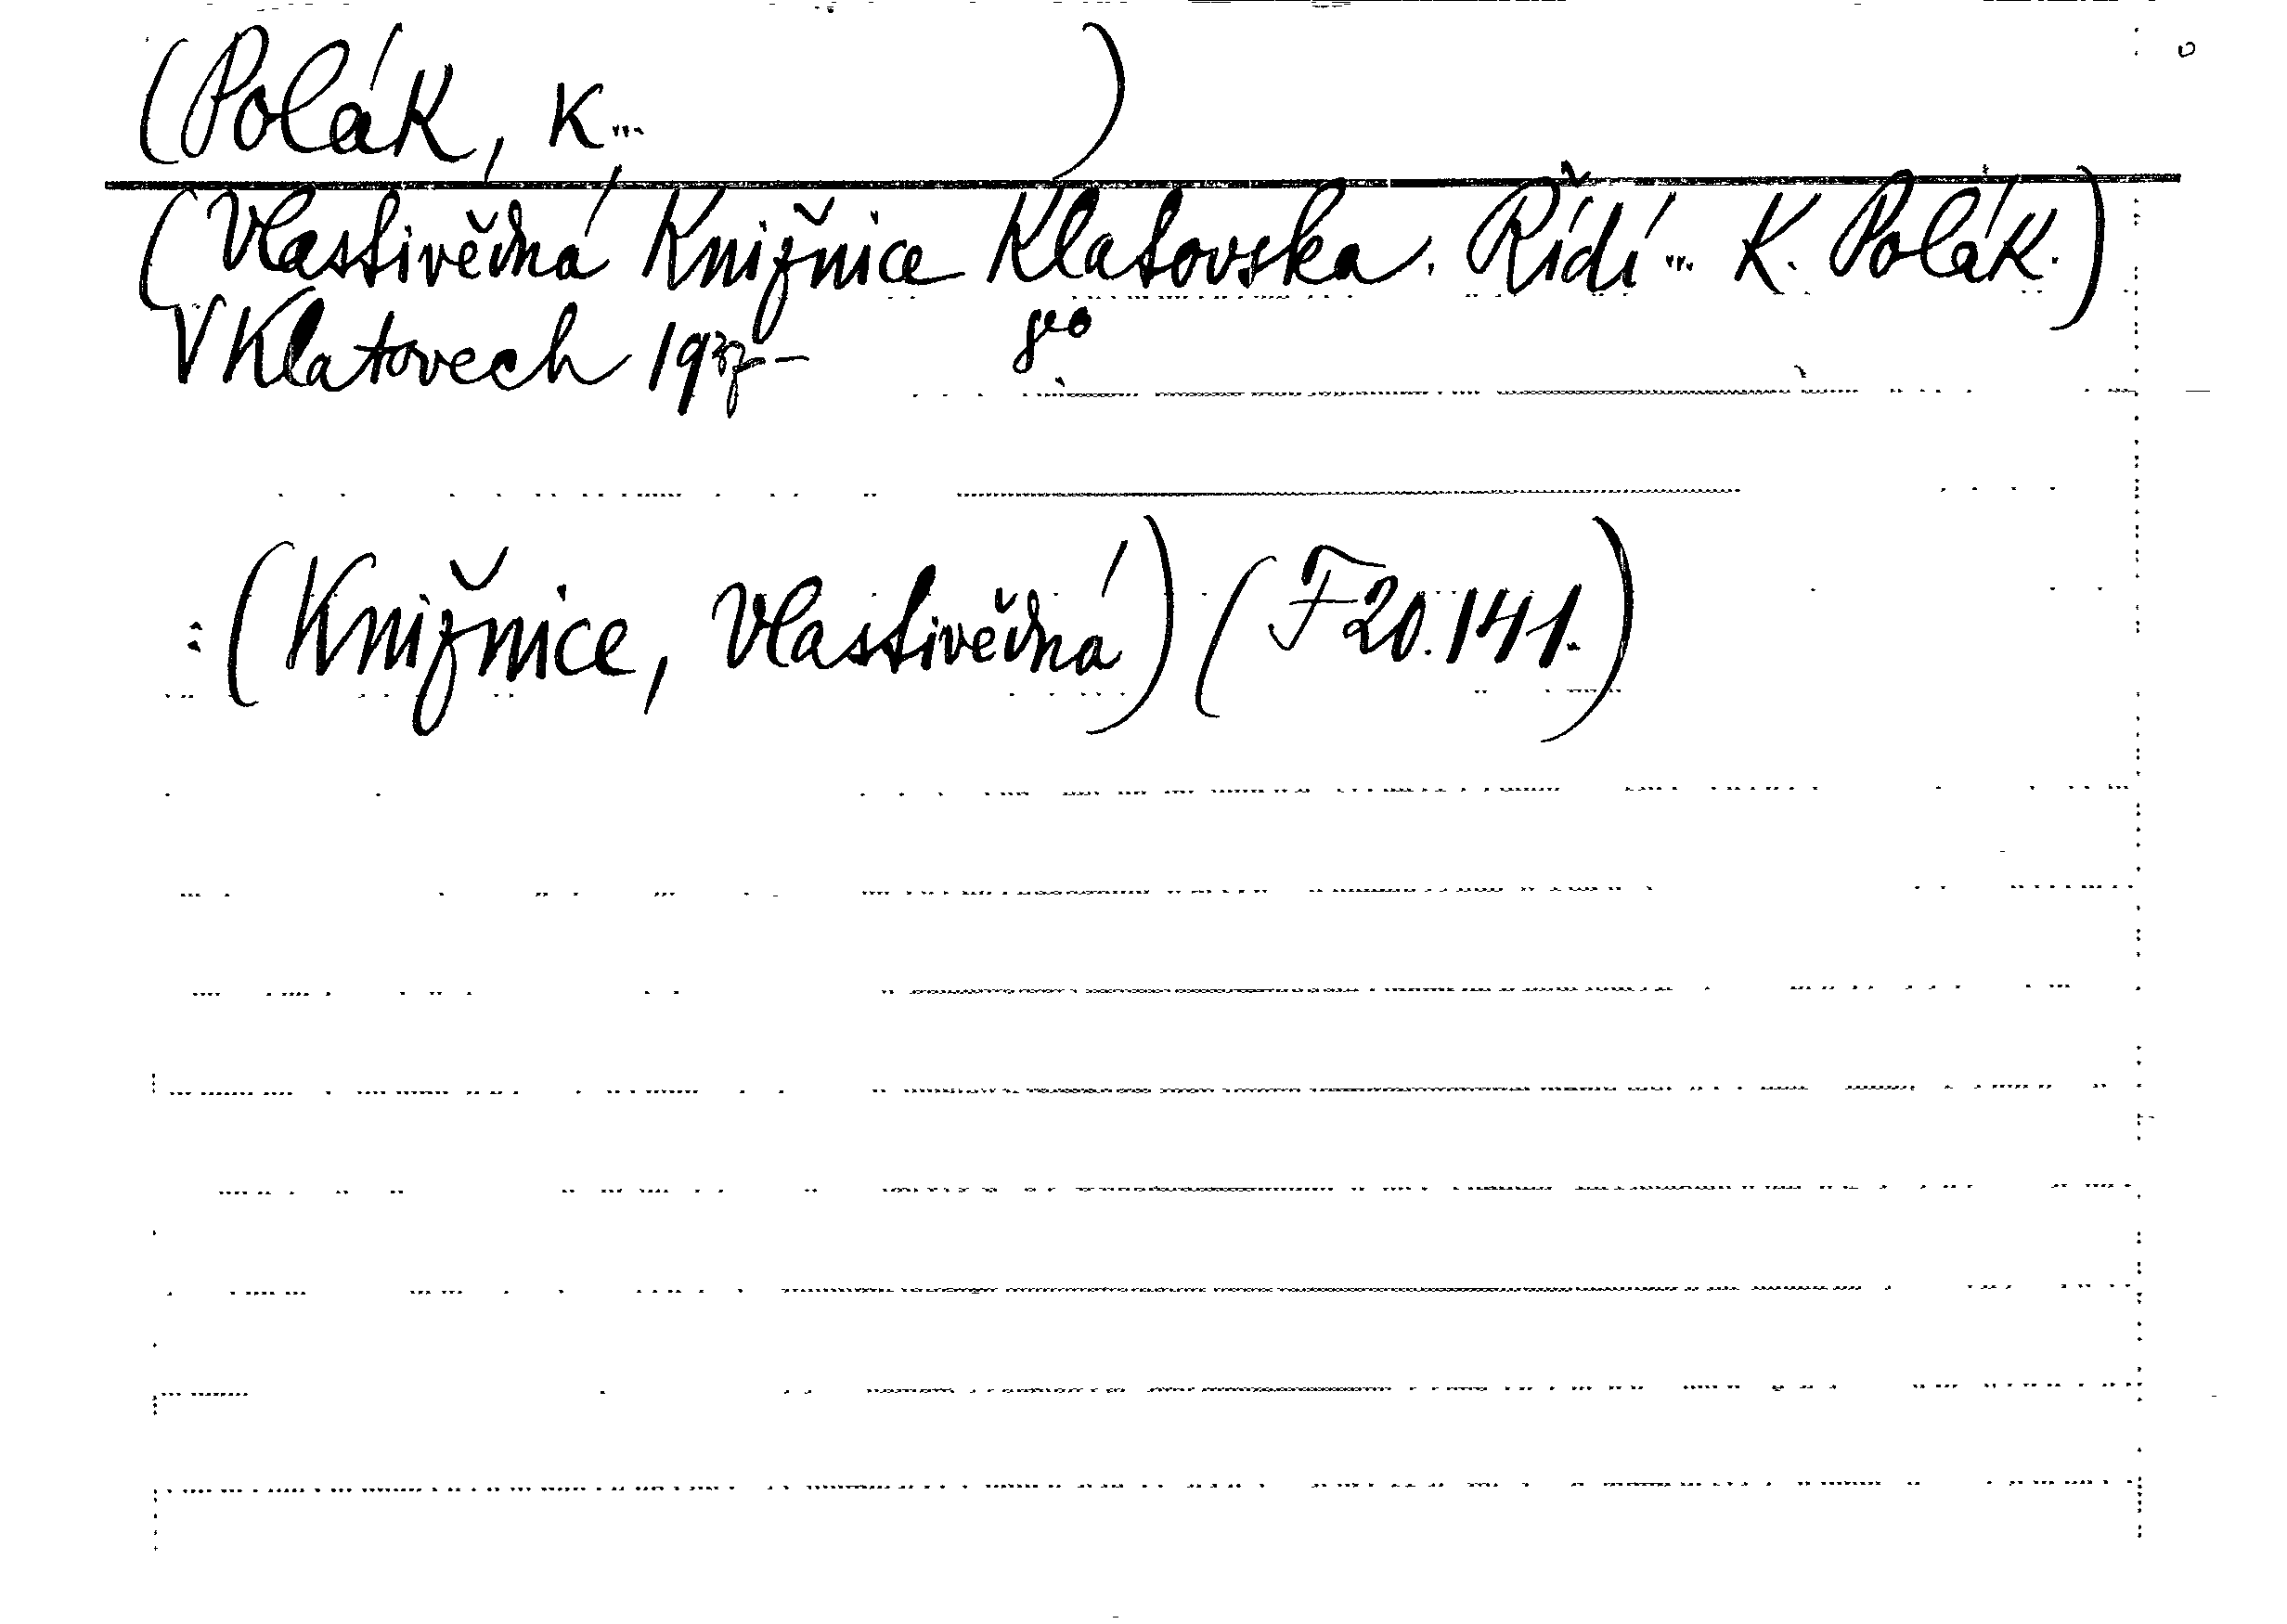 (Polák, K... )
(Vlastivědná Knižnice Klatovska. Řídí... K. Polák.)
V Klatovech 1937- geo
: (Knižnice, Vlastivědná) (F20.141.)